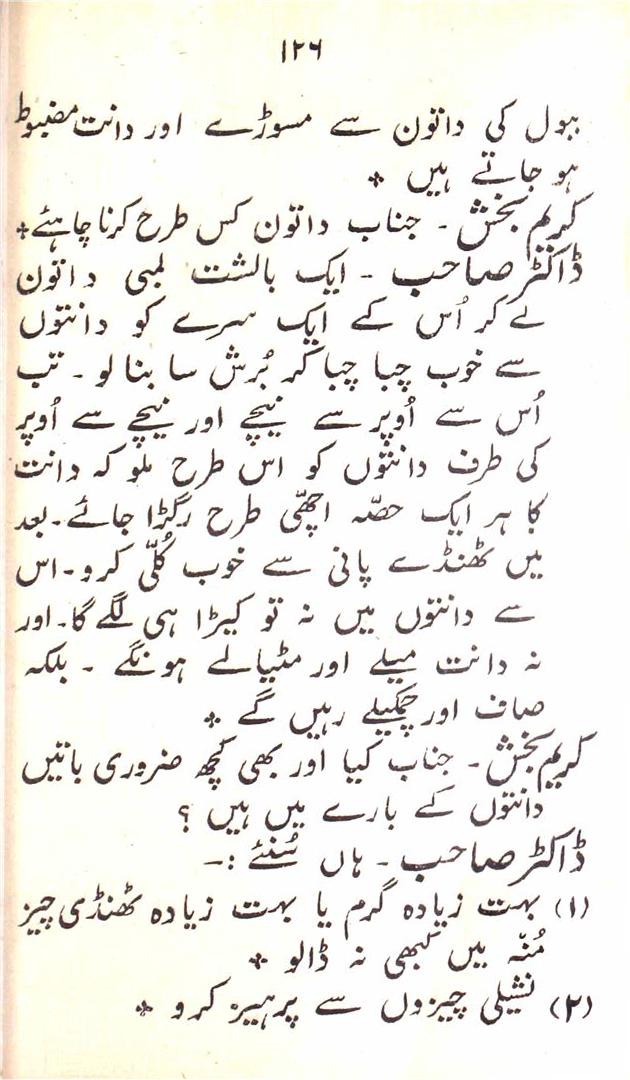 ۱۲۶
ببول کی داتون سے مسوڑے اور دانت مضبوط
ہو جاتے ہیں *
کریم بخش - جناب داتون کس طرح کرنا چاہئے *
ڈاکٹر صاحب - ایک بالشت لمبی داتون
لے کر اُس کے ایک سرے کو دانتوں
سے خوب چبا چبا کر بُرش سا بنا لو - تب
اُس سے اُوپر سے نیچے اور نیچے سے اُوپر
کی طرف دانتوں کو اس طرح ملو کہ دانت
کا ہر ایک حصّہ اچھّی طرح رگڑا جائے - بعد
میں ٹھنڈے پانی سے خوب کُلّی کرو - اس
سے دانتوں میں نہ تو کیڑا ہی لگے گا - اور
نہ دانت میلے اور مٹیالے ہونگے - بلکہ
صاف اور چمکیلے رہیں گے *
کریم بخش - جناب کیا اور بھی کچھ ضروری باتیں
دانتوں کے بارے میں ہیں ؟
ڈاکٹر صاحب - ہاں سُنئے :-
(۱) بہت زیادہ گرم یا بہت زیادہ ٹھنڈی چیز
مُنہ میں کبھی نہ ڈالو *
(۲) نشیلی چیزوں سے پرہیز کرو *